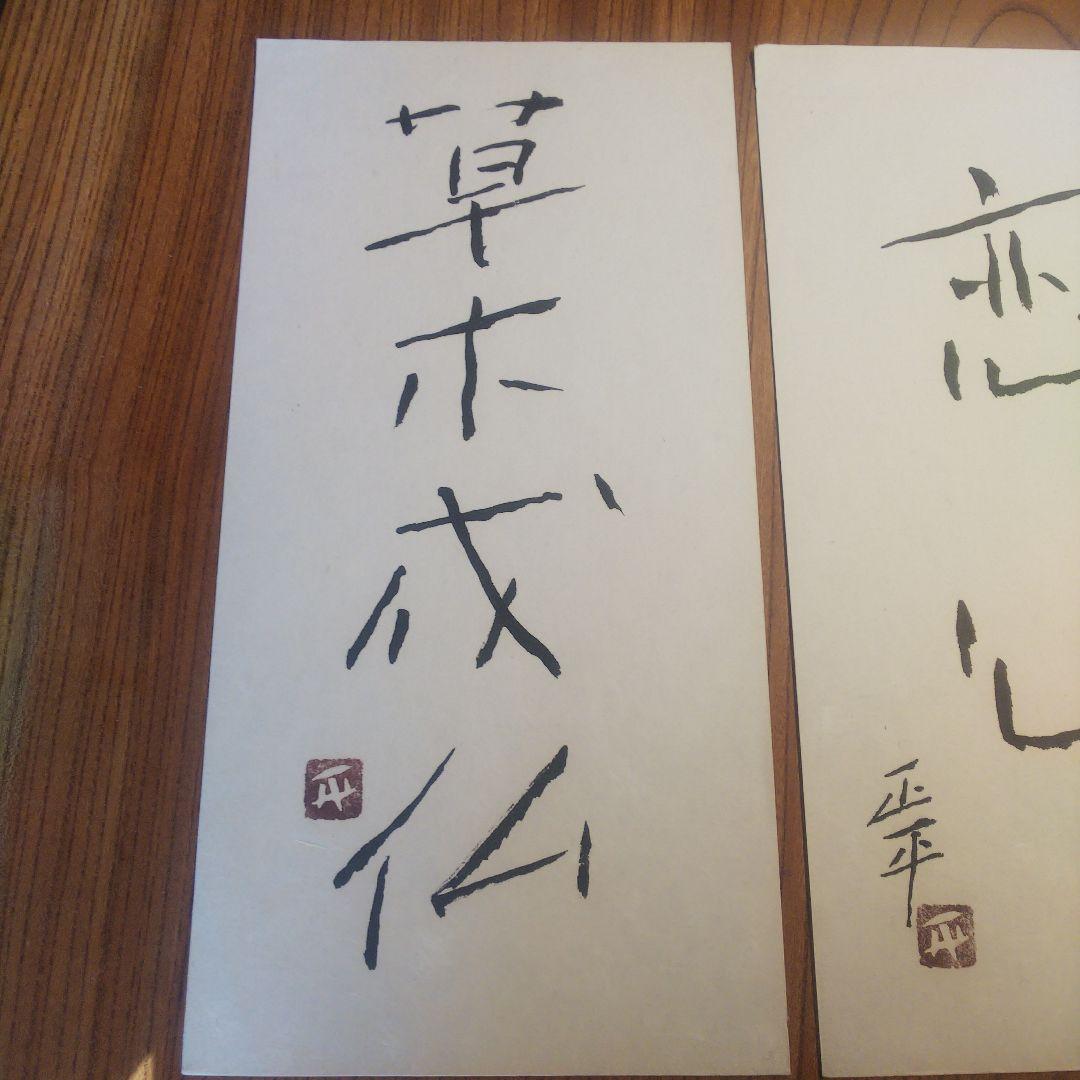 草木成仏
恋心
正平